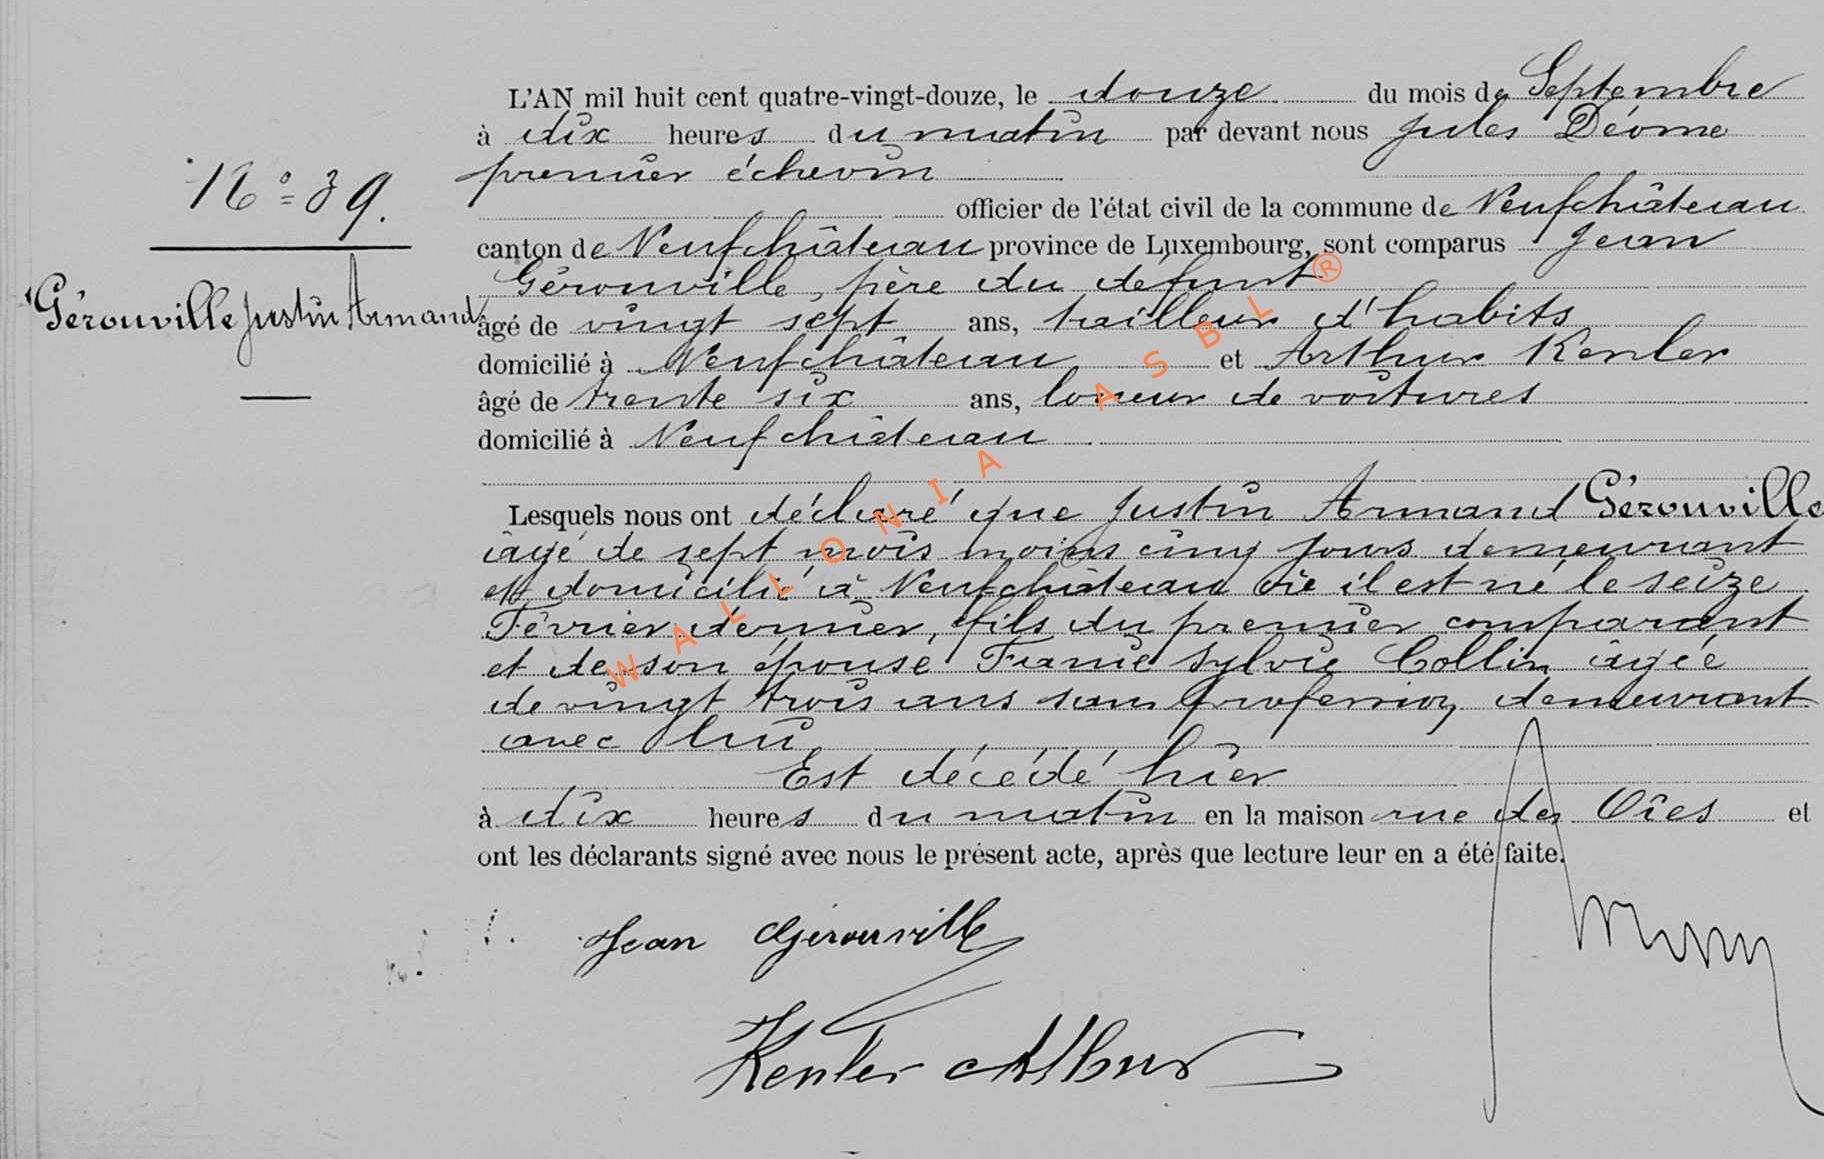 L'AN mil huit cent quatre-vingt-douze, le douze du mois de Septembre
à dix heures du matin par devant nous Jules Déome
premier échevin
officier de l'état civil de la commune de Neufchâteau
canton de Neufchâteau province de Luxembourg, sont comparus Jean
Gérouville, père du défunt
âgé de vingt sept ans, tailleur d'habits
domicilié à Neufchâteau et Arthur Kenler
âgé de trente six ans, loueur de voitures
domicilié à Neufchâteau
Lesquels nous ont déclaré que Justin Armand Gérouville
âgé de sept mois moins cinq jours demeurant
et domicilié à Neufchâteau où il est né le seize
Février dernier, fils du premier comparant
et de son épouse Sylvie Collin âgée
de vingt trois ans sans profession demeurant
avec lui
Est décédé hier
à dix heures du matin en la maison rue des Oies et
ont les déclarants signé avec nous le présent acte, après que lecture leur en a été faite.
Jean Gérouville
Kenler Arthur
No 39.
Gérouville Justin Armand
WALLONIA ASBL ®